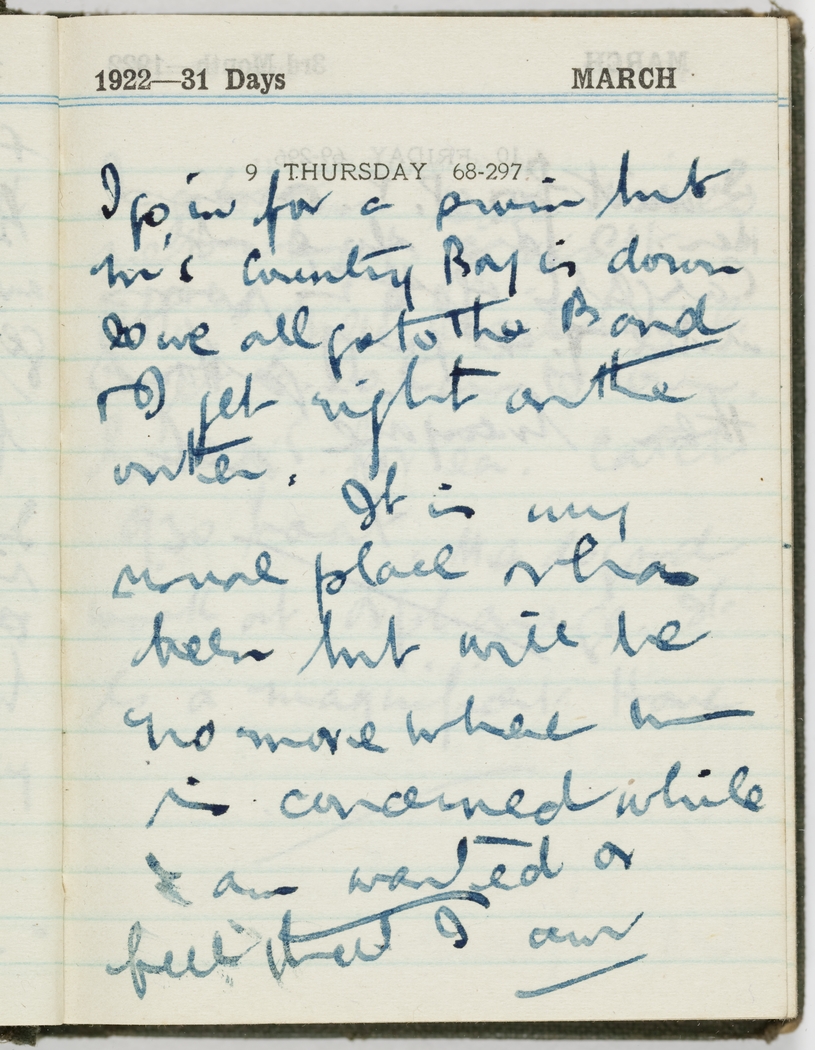 1922—31 Days MARCH
9 THURSDAY 68-297
I go in for a swim but
Country Boy is down
So we all go to the Band
& I get right on the
outer.
It is my
usual place & has
been but will be
no more where
is concerned while
I am wanted or
feel that I am